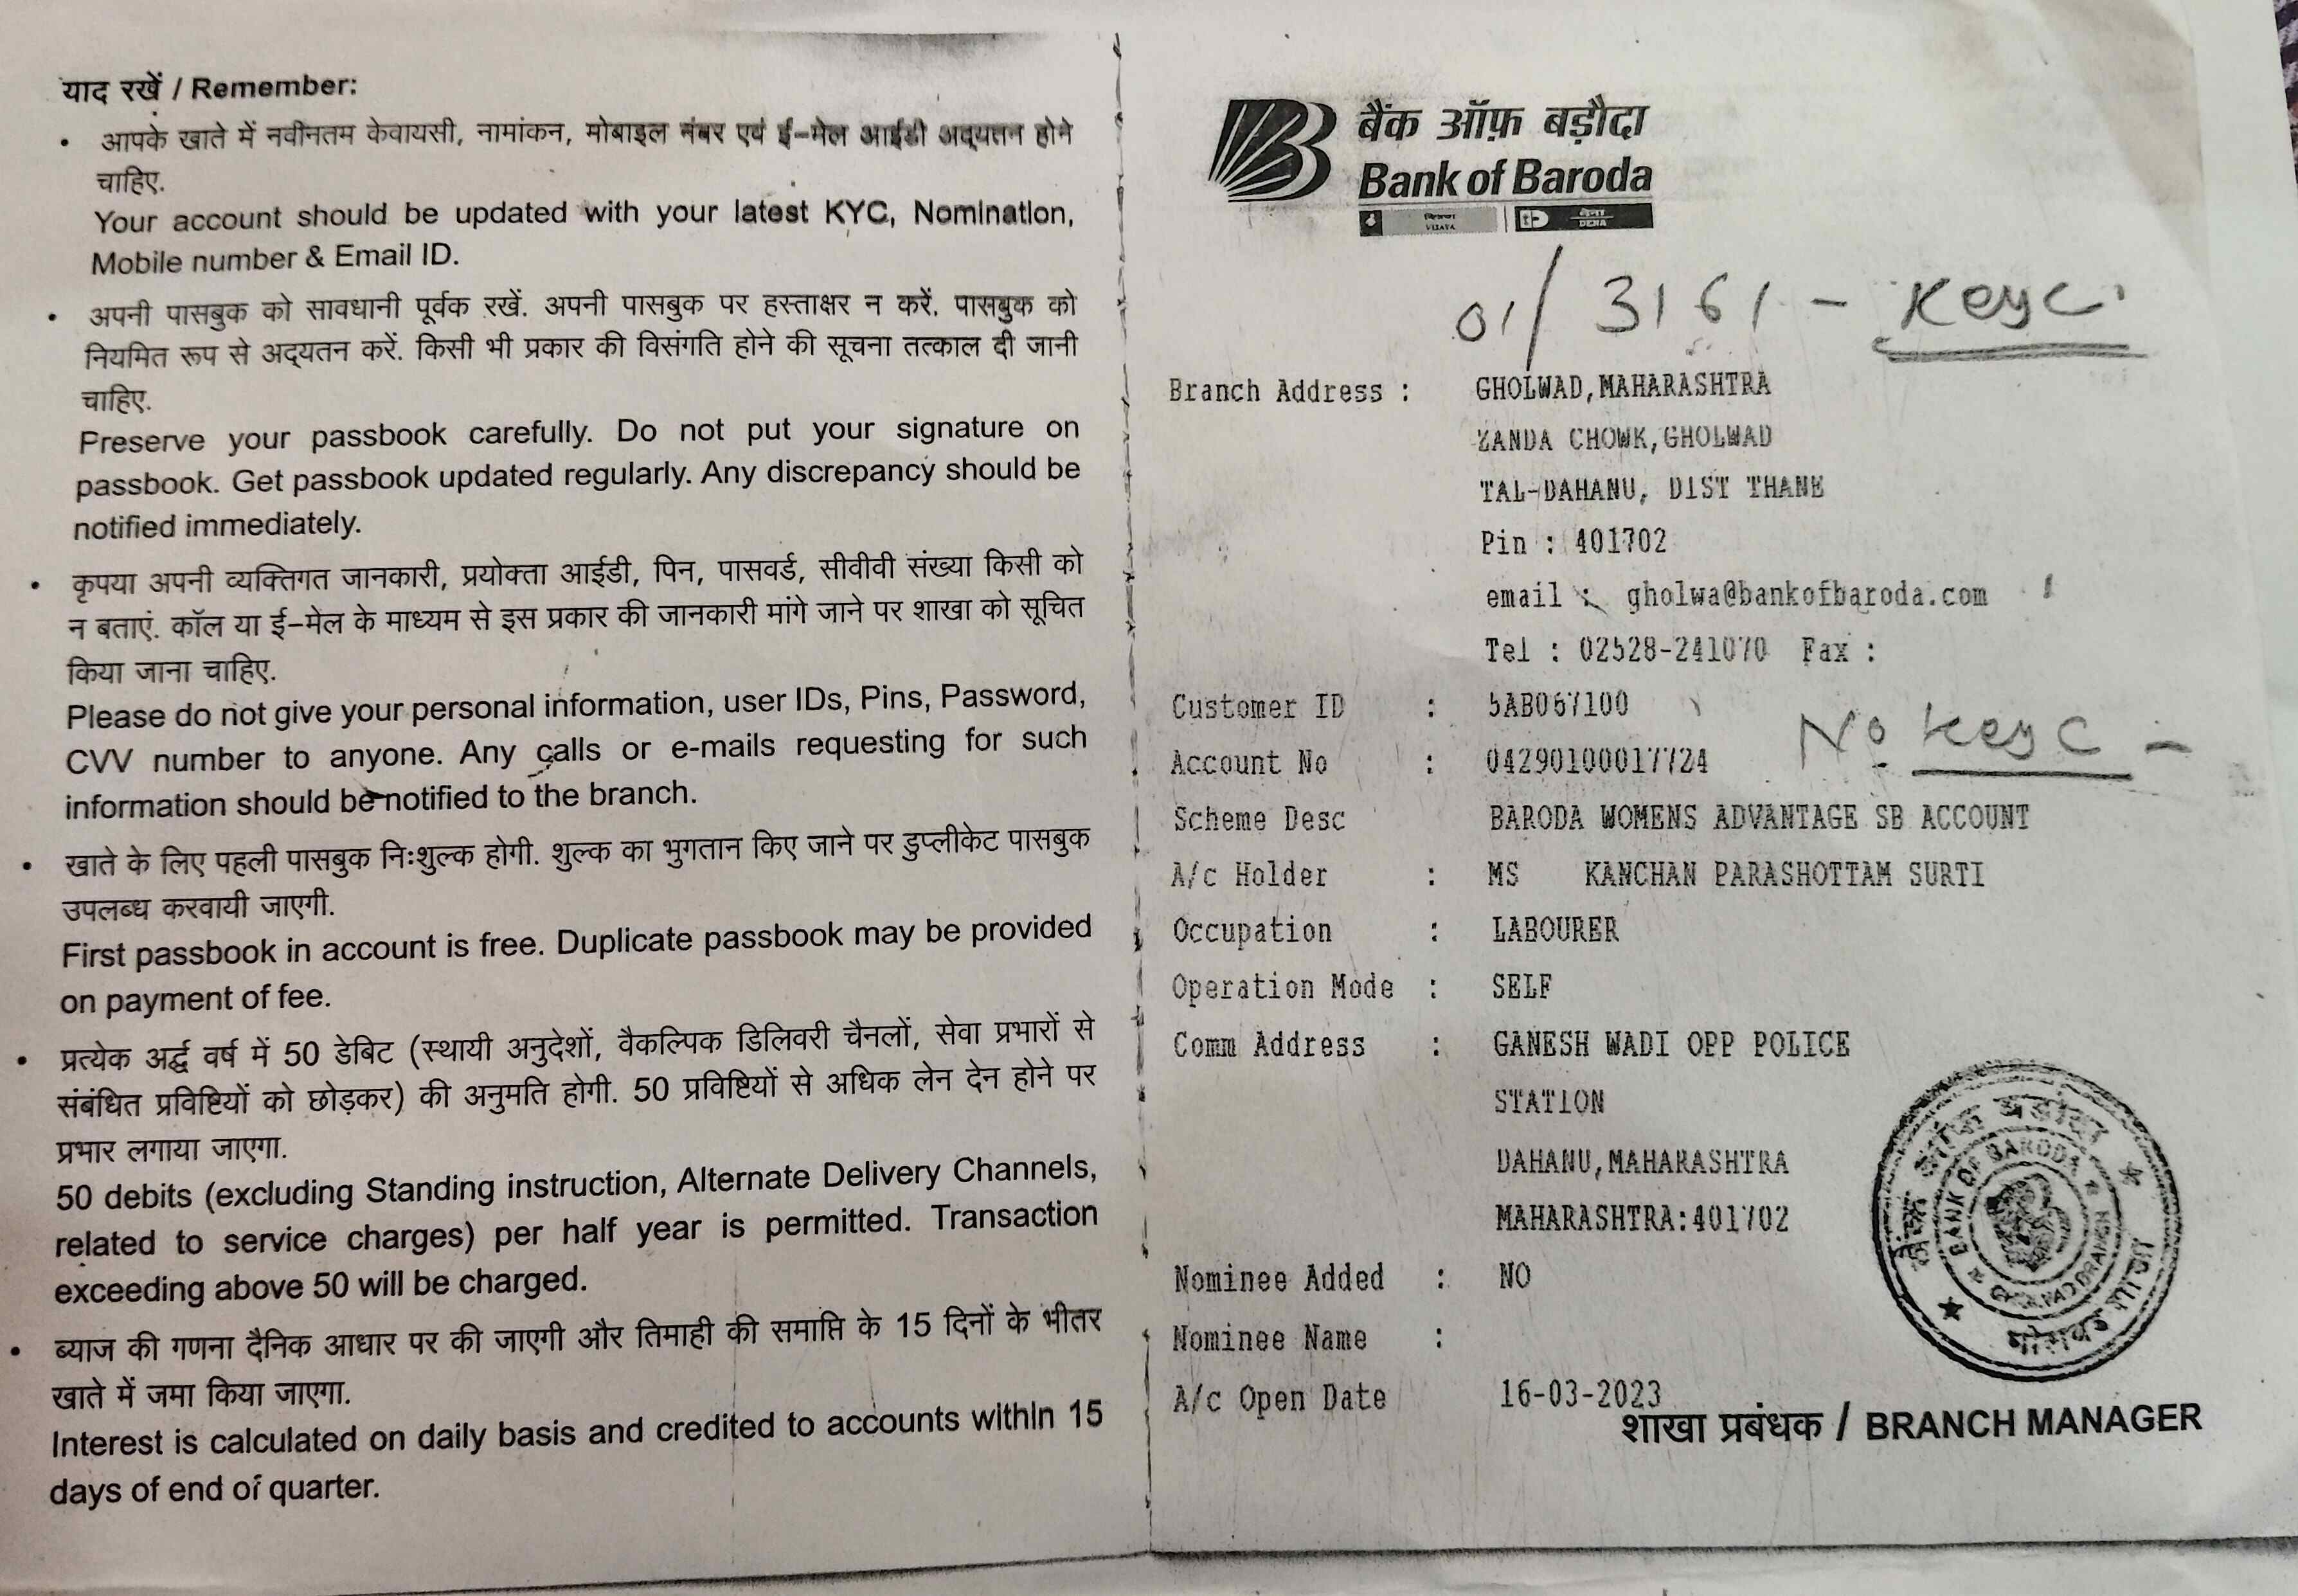 याद रखें / Remember:
• आपके खाते में नवीनतम केवायसी, नामांकन, मोबाइल नंबर एवं ई-मेल आईडी अद्यतन होने
चाहिए.
Your account should be updated with your latest KYC, Nomination,
Mobile number & Email ID.
• अपनी पासबुक को सावधानी पूर्वक रखें. अपनी पासबुक पर हस्ताक्षर न करें. पासबुक को
नियमित रूप से अद्यतन करें. किसी भी प्रकार की विसंगति होने की सूचना तत्काल दी जानी
चाहिए.
Preserve your passbook carefully. Do not put your signature on
passbook. Get passbook updated regularly. Any discrepancy should be
notified immediately.
• कृपया अपनी व्यक्तिगत जानकारी, प्रयोक्ता आईडी, पिन, पासवर्ड, सीवीवी संख्या किसी को
न बताएं. कॉल या ई-मेल के माध्यम से इस प्रकार की जानकारी मांगे जाने पर शाखा को सूचित
किया जाना चाहिए.
Please do not give your personal information, user IDs, Pins, Password,
CVV number to anyone. Any calls or e-mails requesting for such
information should be notified to the branch.
• खाते के लिए पहली पासबुक निःशुल्क होगी. शुल्क का भुगतान किए जाने पर डुप्लीकेट पासबुक
उपलब्ध करवायी जाएगी.
First passbook in account is free. Duplicate passbook may be provided
on payment of fee.
• प्रत्येक अर्द्ध वर्ष में 50 डेबिट (स्थायी अनुदेशों, वैकल्पिक डिलिवरी चैनलों, सेवा प्रभारों से
संबंधित प्रविष्टियों को छोड़कर) की अनुमति होगी. 50 प्रविष्टियों से अधिक लेन देन होने पर
प्रभार लगाया जाएगा.
50 debits (excluding Standing instruction, Alternate Delivery Channels,
related to service charges) per half year is permitted. Transaction
exceeding above 50 will be charged.
• ब्याज की गणना दैनिक आधार पर की जाएगी और तिमाही की समाप्ति के 15 दिनों के भीतर
खाते में जमा किया जाएगा.
Interest is calculated on daily basis and credited to accounts within 15
days of end of quarter.
बैंक ऑफ़ बड़ौदा
Bank of Baroda
VIJAYA देना DENA
01/ 3161 - Keyc
Branch Address : GHOLWAD,MAHARASHTRA
ZANDA CHOWK,GHOLWAD
TAL-DAHANU, DIST THANE
Pin : 401702
email : gholwa@bankofbaroda.com
Tel : 02528-241070 Fax :
Customer ID : 5AB067100
No Keyc -
Account No : 04290100017724
Scheme Desc BARODA WOMENS ADVANTAGE SB ACCOUNT
A/c Holder : MS KANCHAN PARASHOTTAM SURTI
Occupation : LABOURER
Operation Mode : SELF
Comm Address : GANESH WADI OPP POLICE
STATION
DAHANU,MAHARASHTRA
MAHARASHTRA:401702
Nominee Added : NO
Nominee Name :
A/c Open Date 16-03-2023
बैंक ऑफ बड़ौदा
BANK OF BARODA
शाखा प्रबंधक / BRANCH MANAGER